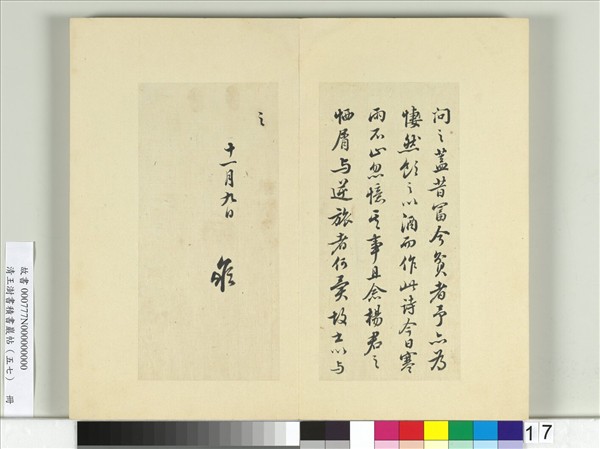 問之蓋昔富今貧者予亦為
悽然飲之以酒而作此詩今日寒
雨不止忽憶其事且念楊君之
栖屑与逆旅者何異故書以与
之
十一月九日
故書 000777N000000000
清王澍書積書巖帖（五七） 冊
17